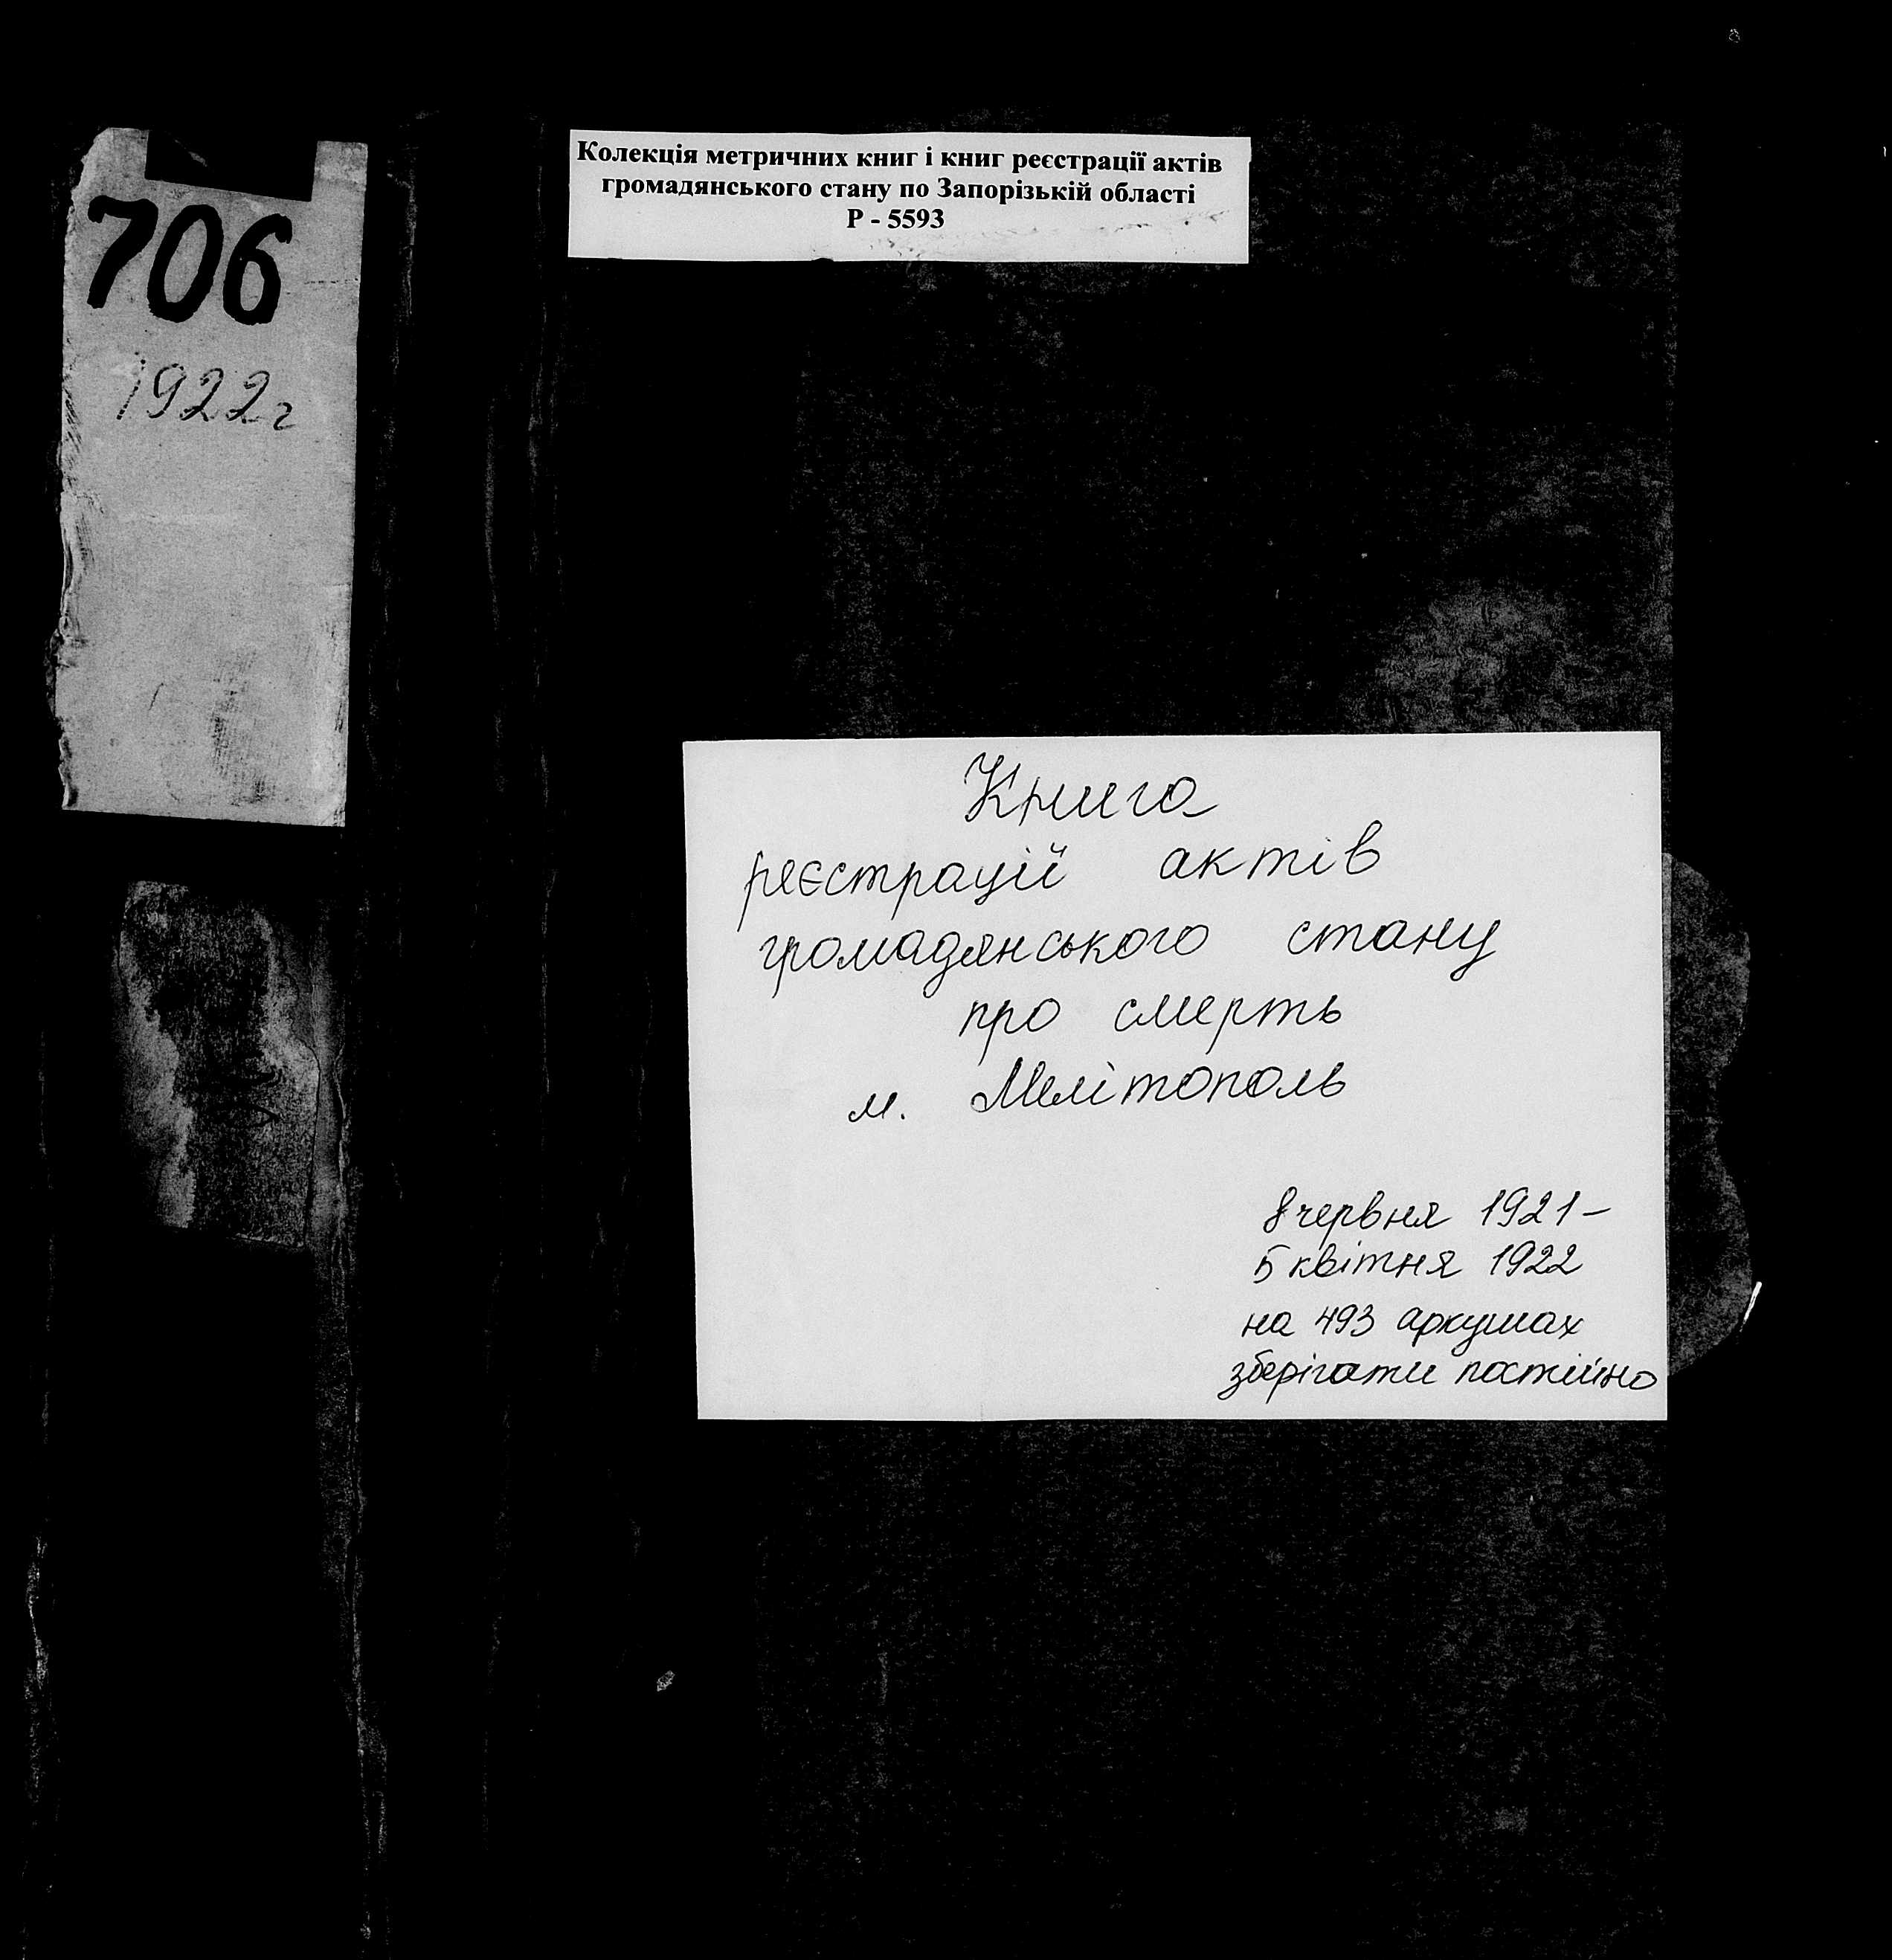 Колекція метричних книг і книг реєстрації актів
громадянського стану по Запорізькій області
Р - 5593
706
1922г
Книга
реєстрацій актів
громадянського стану
про смерть
м. Мелітополь
8 червня 1921 –
5 квітня 1922
на 493 аркушах
зберігати постійно